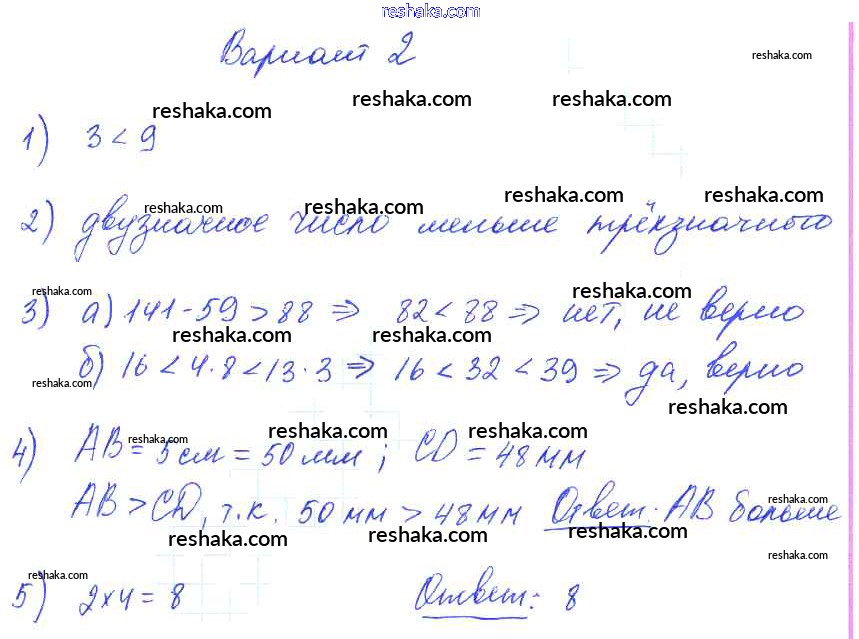 reshaka.com
Вариант 2
reshaka.com
reshaka.com reshaka.com reshaka.com
1) 3 < 9
reshaka.com reshaka.com reshaka.com reshaka.com
2) двузначное число меньше трёхзначного
reshaka.com reshaka.com
3) а) 141-59 > 88 ⇒ 82 < 88 ⇒ нет, не верно
reshaka.com reshaka.com
б) 16 < 4·8 < 13·3 ⇒ 16 < 32 < 39 ⇒ да, верно
reshaka.com reshaka.com
reshaka.com reshaka.com reshaka.com
4) AB = 5 см = 50 мм; CD = 48 мм
reshaka.com
AB > CD, т.к. 50 мм > 48 мм Ответ: AB больше
reshaka.com reshaka.com reshaka.com
reshaka.com reshaka.com
5) 2×4 = 8 Ответ: 8